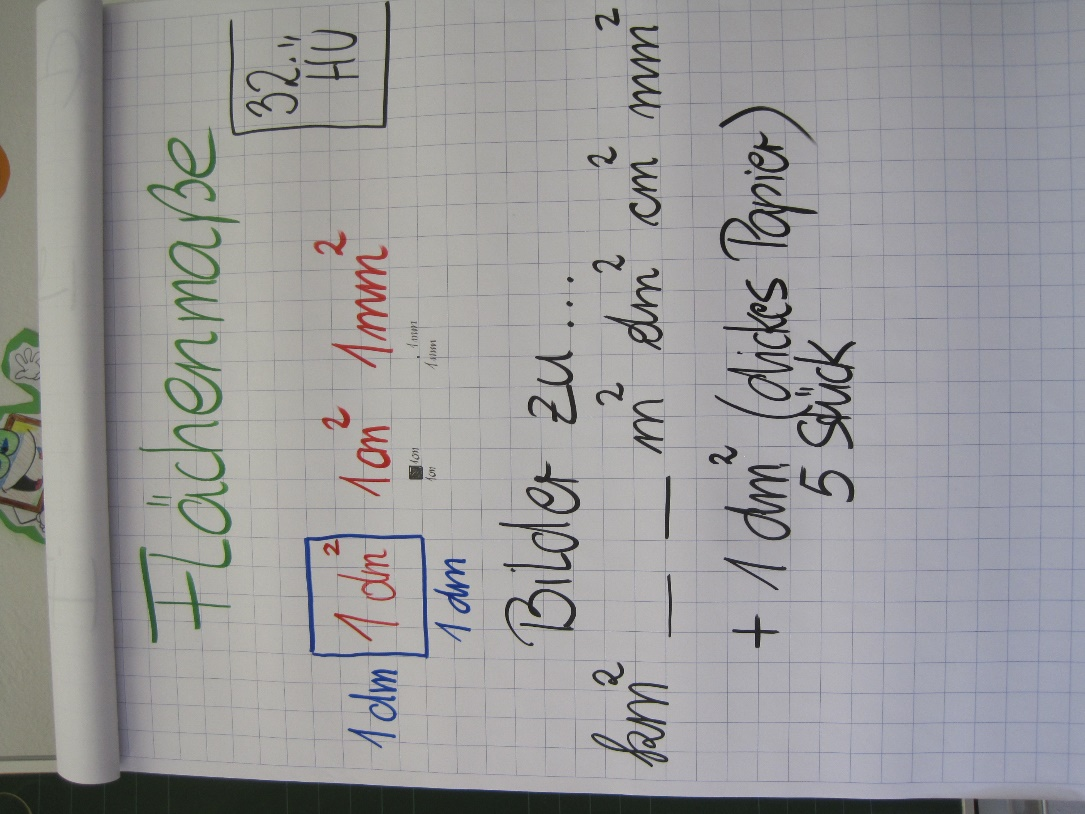 Flächenmaße
32. HÜ
1 dm² 1cm² 1mm²
1 dm
1 dm
1cm
1cm
1mm
1mm
Bilder zu...
km² _ _ m² dm² cm² mm²
+ 1 dm² (dickes Papier)
5 Stück